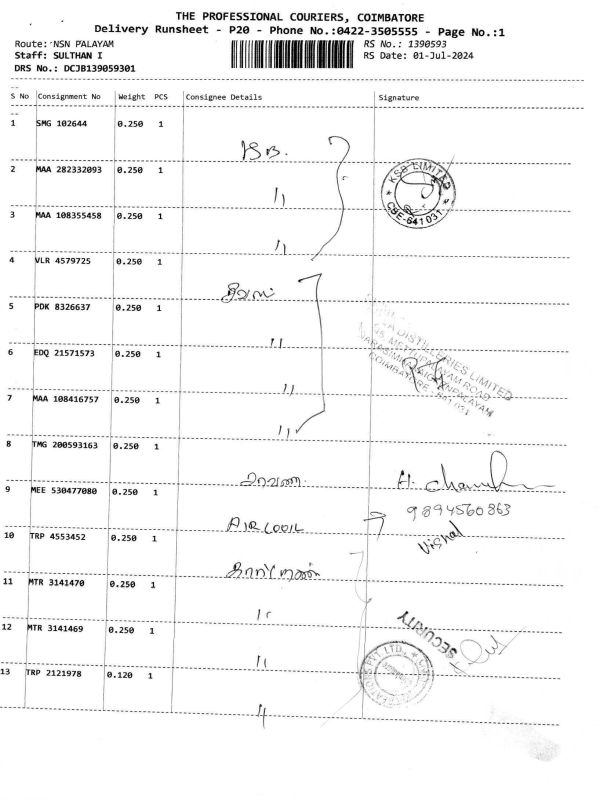 THE PROFESSIONAL COURIERS, COIMBATORE
Delivery Runsheet - P20 - Phone No.:0422-3505555 - Page No.:1
Route: NSN PALAYAM
RS No.: 1390593
Staff: SULTHAN I
RS Date: 01-Jul-2024
DRS No.: DCJB139059301
S No Consignment No Weight PCS Consignee Details Signature
1 SMG 102644 0.250 1
KSB.
2 MAA 282332093 0.250 1
KSB LIMITED
CBE-641 031
11
3 MAA 108355458 0.250 1
11
4 VLR 4579725 0.250 1
5 PDK 8326637 0.250 1
DISTILLERIES LIMITED
METTUPALAYAM ROAD
COIMBATORE - 641 031
11
6 EDQ 21571573 0.250 1
11
7 MAA 108416757 0.250 1
11
8 TMG 200593163 0.250 1
9 MEE 530477080 0.250 1
9894560863
AIR COOIL
Vishal
10 TRP 4553452 0.250 1
11 MTR 3141470 0.250 1
11
12 MTR 3141469 0.250 1
SECURITY
11
13 TRP 2121978 0.120 1
PVT LTD.
11